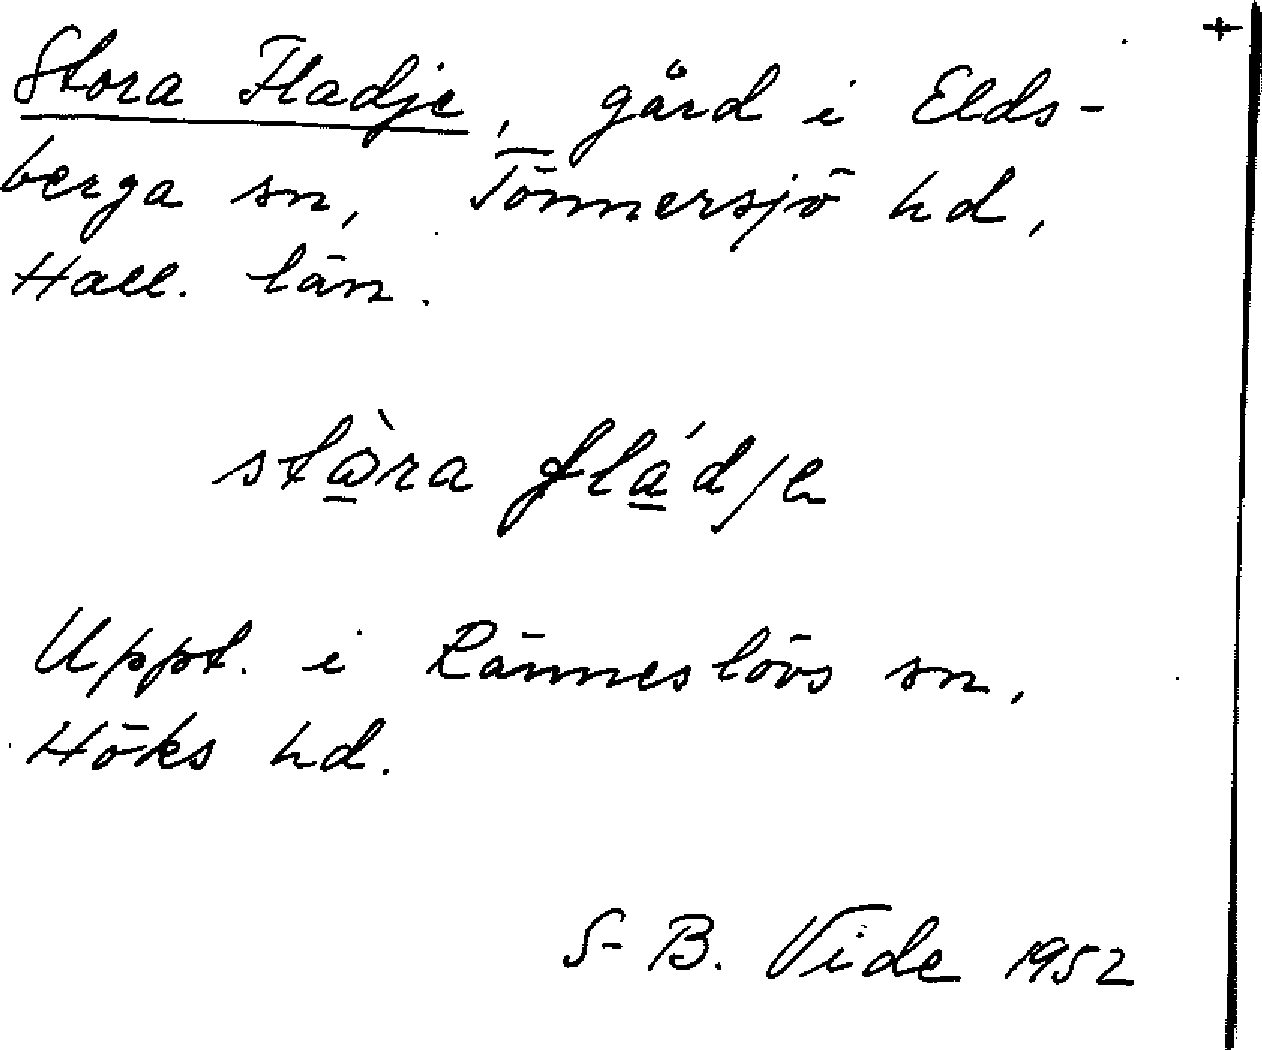 +
Stora Fladje, gård i Elds-
berga sn, Tönnersjö hd,
Hall. län.
stὼ̲ra flá̲dje
Uppt. i Ränneslövs sn,
Höks hd.
S-B. Vide 1952